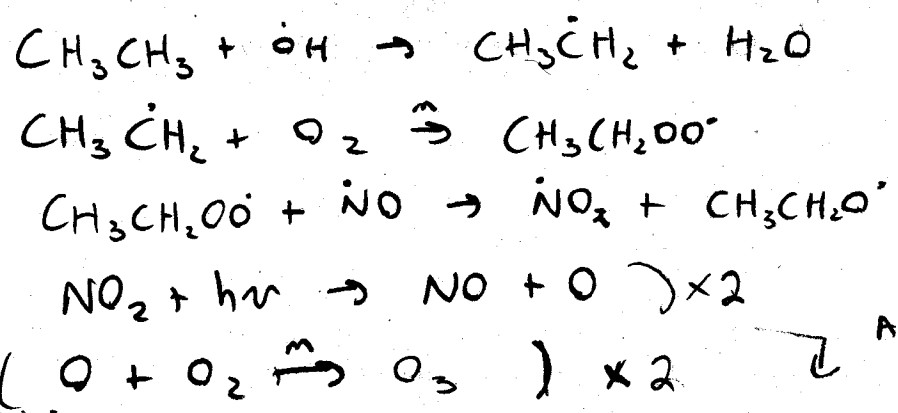 CH₃CH₃ + ȮH → CH₃ĊH₂ + H₂O
CH₃ĊH₂ + O₂ →ᵐ CH₃CH₂OO˙
CH₃CH₂OȮ + ṄO → ṄO₂ + CH₃CH₂O˙
NO₂ + hν → NO + O ) ×2
( O + O₂ →ᵐ O₃ ) × 2 A